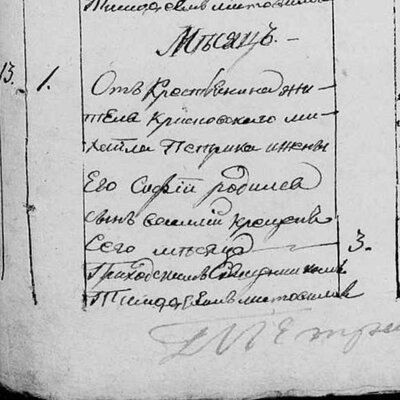 Тимофеемъ
Мѣсяцъ.-
13. 1. Отъ Крестьянина жи-
теля Красновского ми-
хайла Петрика и жены
Его Софій родился
сынъ василій крещенъ
Сего мѣсяца 3.
Приходскимъ Священникомъ
Тимофеемъ
Петри